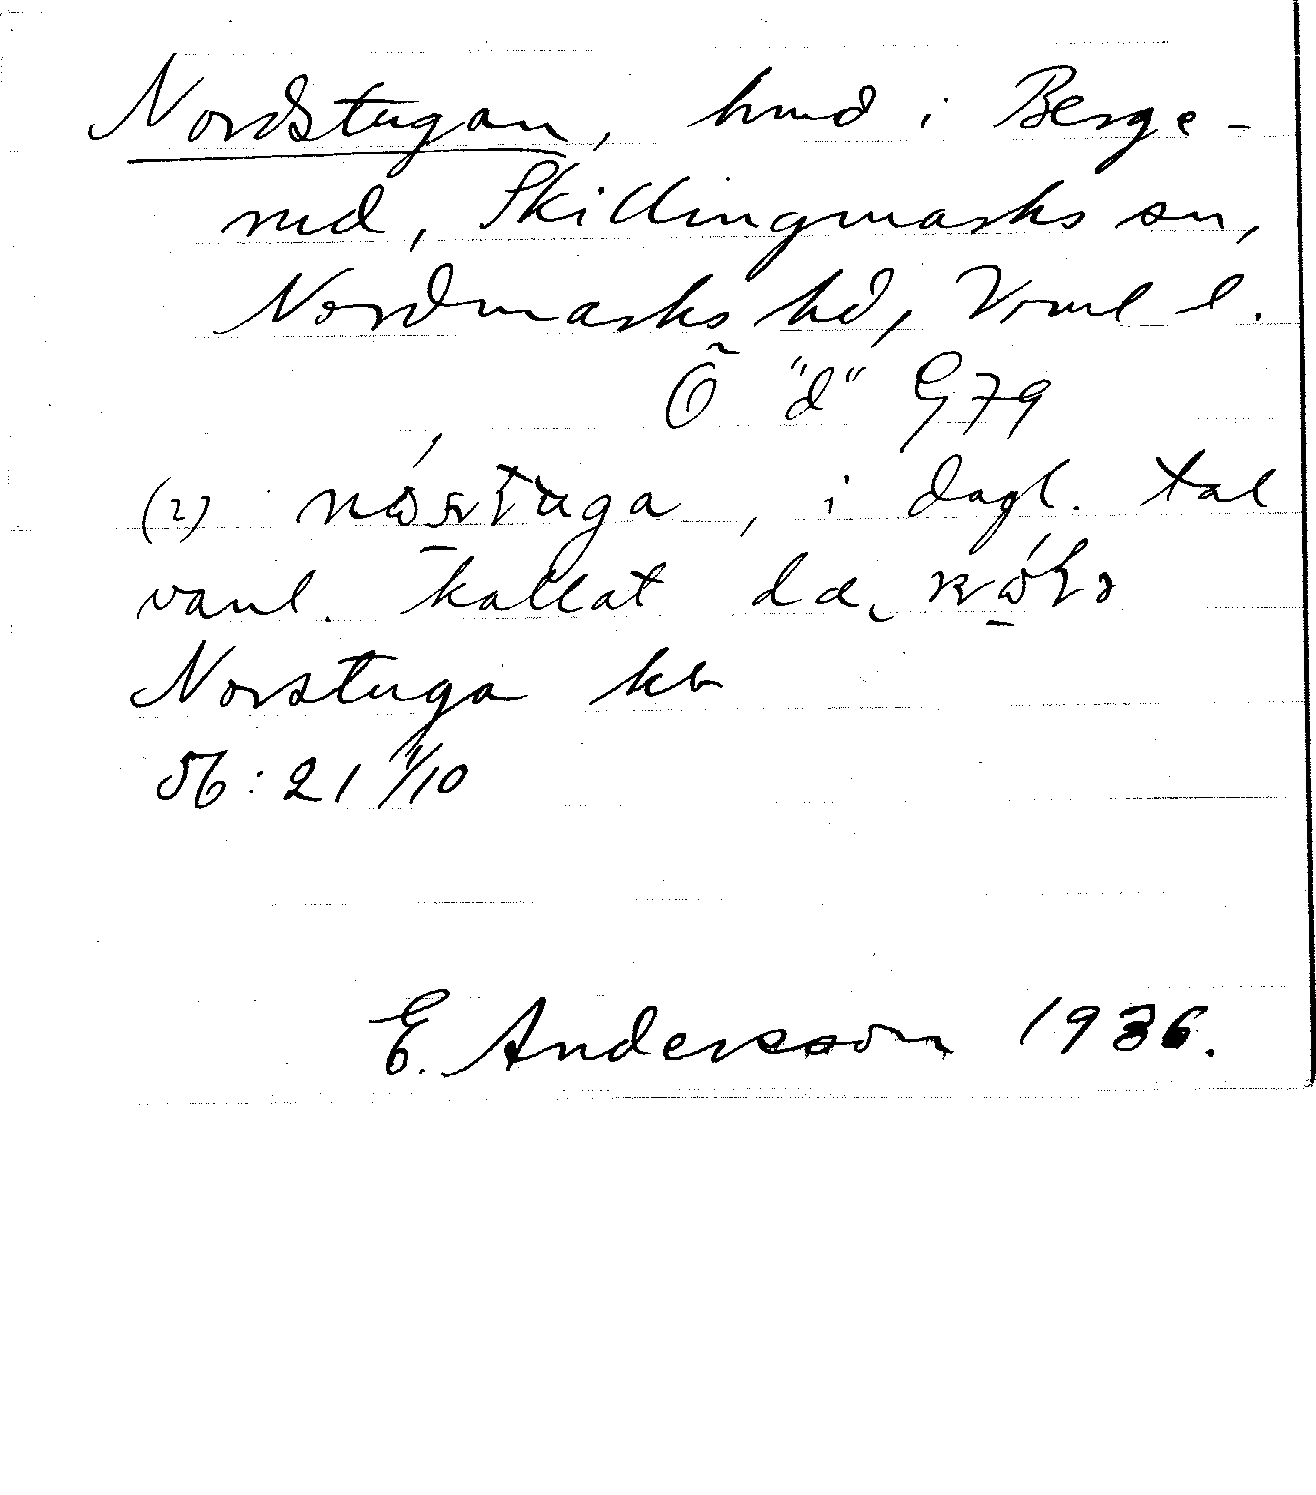 Nordstugan, hmd i Berge-
rud, Skillingmarks sn,
Nordmarks hd, Vrml l.
Õ "d" G79
(2) nástuga, i dagl. tal
vanl. kallat
Norstuga kb
M: 21 1/10
E. Andersson 1936.